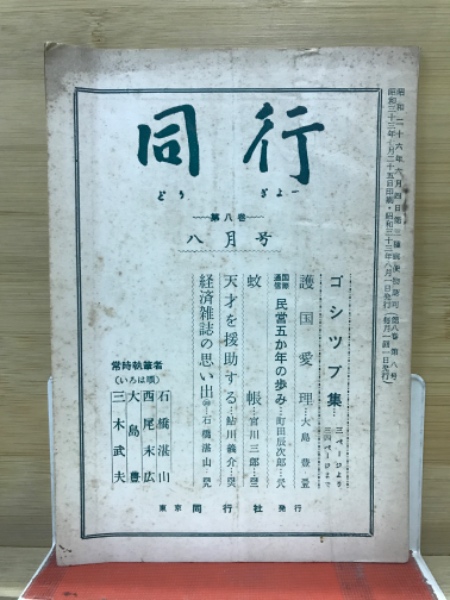 昭和二十六年六月四日第三種郵便物認可(第八巻第八号)
昭和三十三年七月二十五日印刷・昭和三十三年八月一日発行(毎月一回一日発行)
同行
どうぎよー
第八巻
八月号
ゴシツプ集
三ページより
三四ページまで
護国愛理…大島豊
国際通信 民営五か年の歩み…町田辰次郎
蚊帳…宮川三郎
天才を援助する…鮎川義介
経済雑誌の思い出…石橋湛山
常時執筆者
(いろは順)
石橋湛山
西尾末広
大島豊
三木武夫
東京 同行社 発行